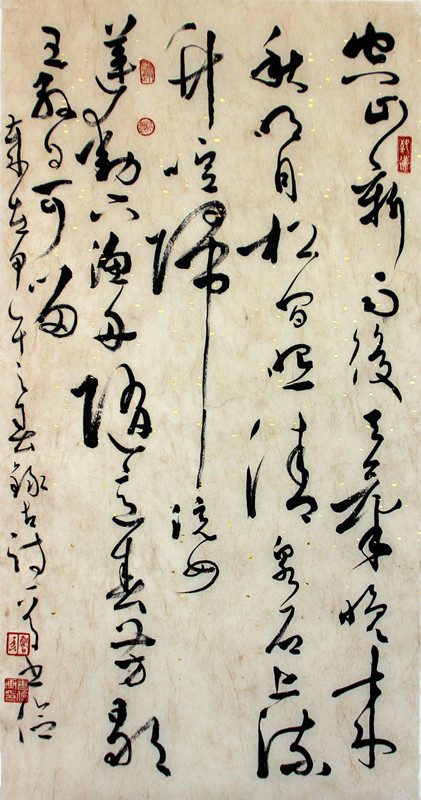 空山新雨後天氣晚來
秋明月松間照清泉石上流
竹喧歸浣女
蓮動下漁舟隨意春芳歇
王孫自可留
歲在甲午之春錄古詩一首